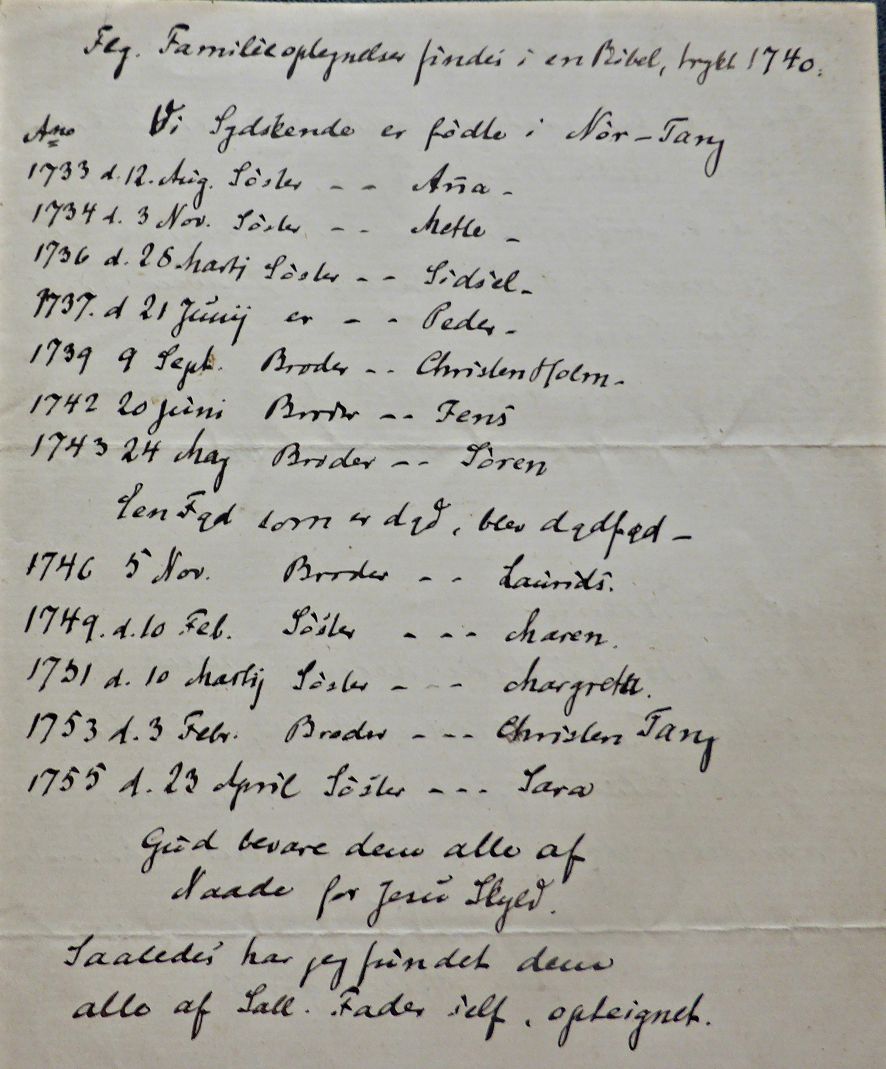 Flg. Familieoptegnelser findes i en Bibel, trykt 1740.
Vi Sydskende er födte i Nör-Tang
Ano
1733 d. 12. Aug. Söster - - Aña -
1734 d. 3 Nov. Söster - - Mette -
1736 d. 28 Martj Söster - - Sidsel -
1737. d 21 Junij er - - Peder -
1739 9 Sept. Broder - - Christen Holm -
1742 20 Juni Broder - - Jens
1743 24 May Broder - - Sören
som er dyd, blev dydfyd -
1746 5 Nov. Broder - - Laurids.
1749. d. 10 Feb. Söster - - - Maren.
1751 d. 10 Martij Söster - - - Margreta.
1753 d. 3 Febr. Broder - - - Christen Tang
1755 d. 23 April Söster - - - Sara
Gud bevare dem alle af
Naade for Jesu Skyld.
Saaledes har jeg fundet dem
alle af Sall. Fader self, opteignet.